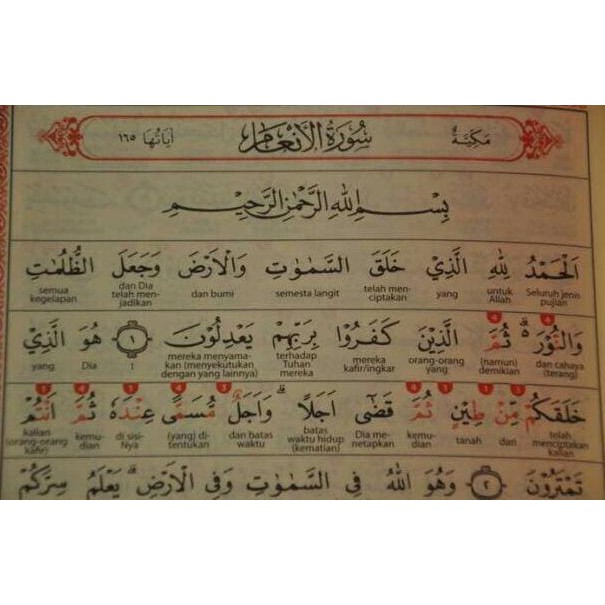 مَكِّيَّةٌ سُورَةُ الْأَنْعَامِ اٰيَاتُهَا ١٦٥
بِسْمِ اللّٰهِ الرَّحْمٰنِ الرَّحِيْمِ
اَلْحَمْدُ لِلّٰهِ الَّذِيْ خَلَقَ السَّمٰوٰتِ وَالْاَرْضَ وَجَعَلَ الظُّلُمٰتِ
Seluruh jenis pujian untuk Allah yang telah menciptakan semesta langit dan bumi dan Dia telah menjadikan semua kegelapan
وَالنُّوْرَ ۗ ثُمَّ الَّذِيْنَ كَفَرُوْا بِرَبِّهِمْ يَعْدِلُوْنَ ١ هُوَ الَّذِيْ
dan cahaya (terang) (namun) demikian orang-orang yang mereka kafir/ingkar terhadap Tuhan mereka mereka menyamakan (menyekutukan dengan yang lainnya) 1 Dia yang
خَلَقَكُمْ مِّنْ طِيْنٍ ثُمَّ قَضٰٓى اَجَلًا ۗ وَاَجَلٌ مُّسَمًّى عِنْدَهٗ ثُمَّ اَنْتُمْ
telah menciptakan kalian dari tanah kemudian Dia menetapkan batas waktu hidup (kematian) dan batas waktu (yang) ditentukan di sisi-Nya kemudian kalian (orang-orang kafir)
تَمْتَرُوْنَ ٢ وَهُوَ اللّٰهُ فِى السَّمٰوٰتِ وَفِى الْاَرْضِ ۗ يَعْلَمُ سِرَّكُمْ